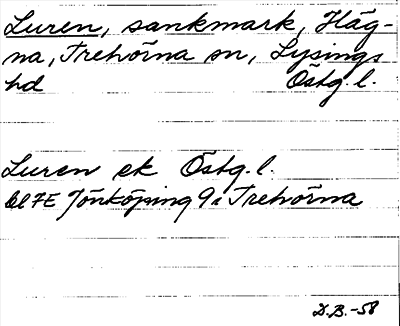 Luren, sankmark, Häg-
na, Trehörna sn, Lysings
hd Östg. l.
Luren ek Östg. l.
bl 7E Jönköping 9a Trehörna
D.B. -58